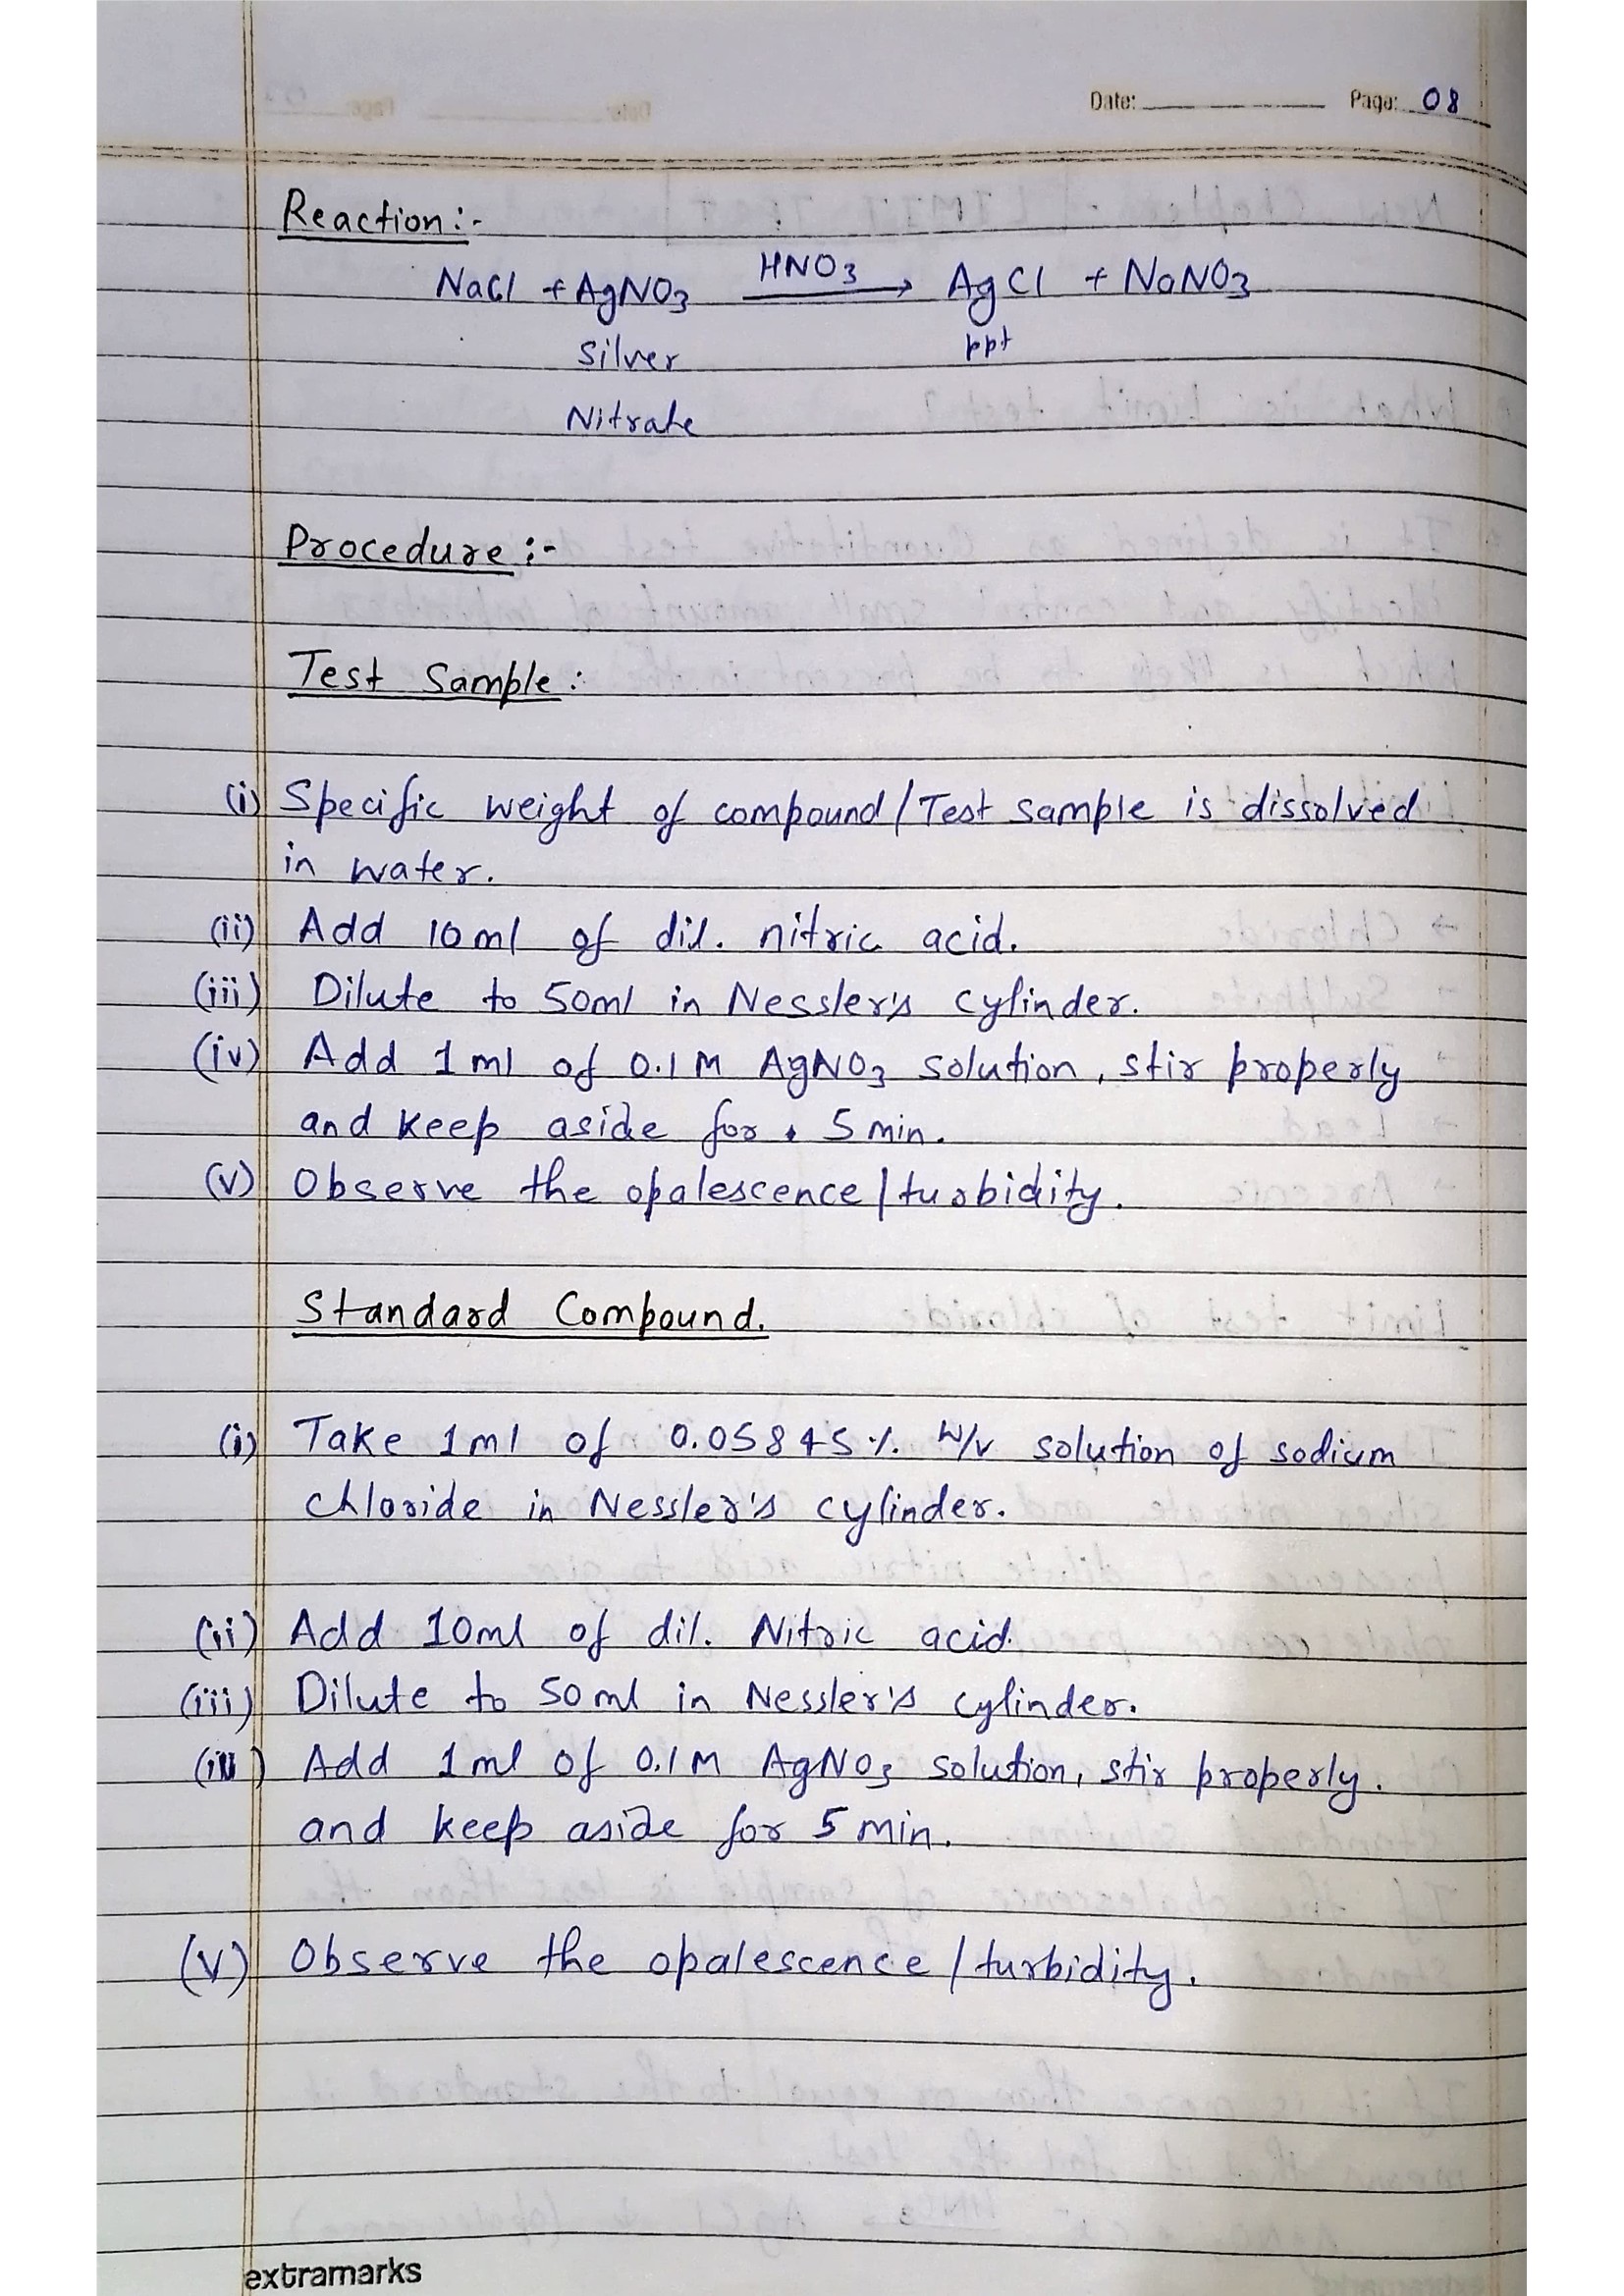 Date: Page: 08
Reaction:-
NaCl + AgNO3 HNO3 → AgCl + NaNO3
Silver ppt
Nitrate
Procedure :-
Test Sample:
(i) Specific weight of compound/Test sample is dissolved
in water.
(ii) Add 10ml of dil. nitric acid.
(iii) Dilute to 50ml in Nessler's cylinder.
(iv) Add 1ml of 0.1M AgNO3 solution, stir properly
and keep aside for 5 min.
(v) Observe the opalescence/turbidity.
Standard Compound.
(i) Take 1ml of 0.05845% W/v solution of sodium
chloride in Nessler's cylinder.
(ii) Add 10ml of dil. Nitric acid.
(iii) Dilute to 50ml in Nessler's cylinder.
(iv) Add 1ml of 0.1M AgNO3 solution, stir properly.
and keep aside for 5 min.
(v) Observe the opalescence/turbidity.
extramarks